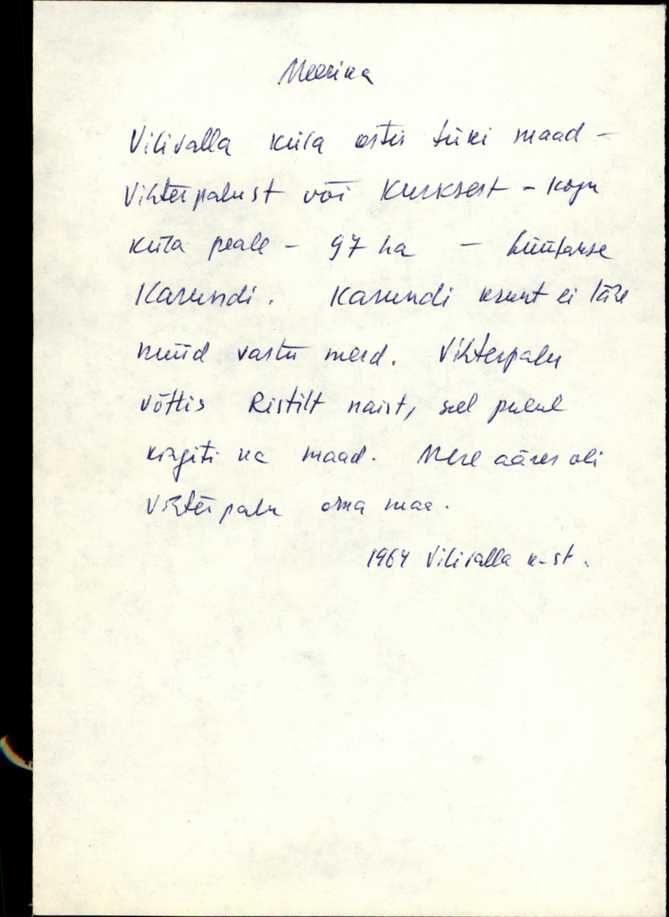 Meerina
Vilivalla küla ostis tüki maad –
Vihterpalust või Kurksest – kogu
küla peale – 97 ha – hüütakse
Karundi. Karundi krunt ei läe
nüüd vastu merd. Vihterpalu
võttis Ristilt naist, sel puhul
kingiti ka maad. Mere ääres oli
Vihterpalu oma maa.
1964 Vilivalla k-st.